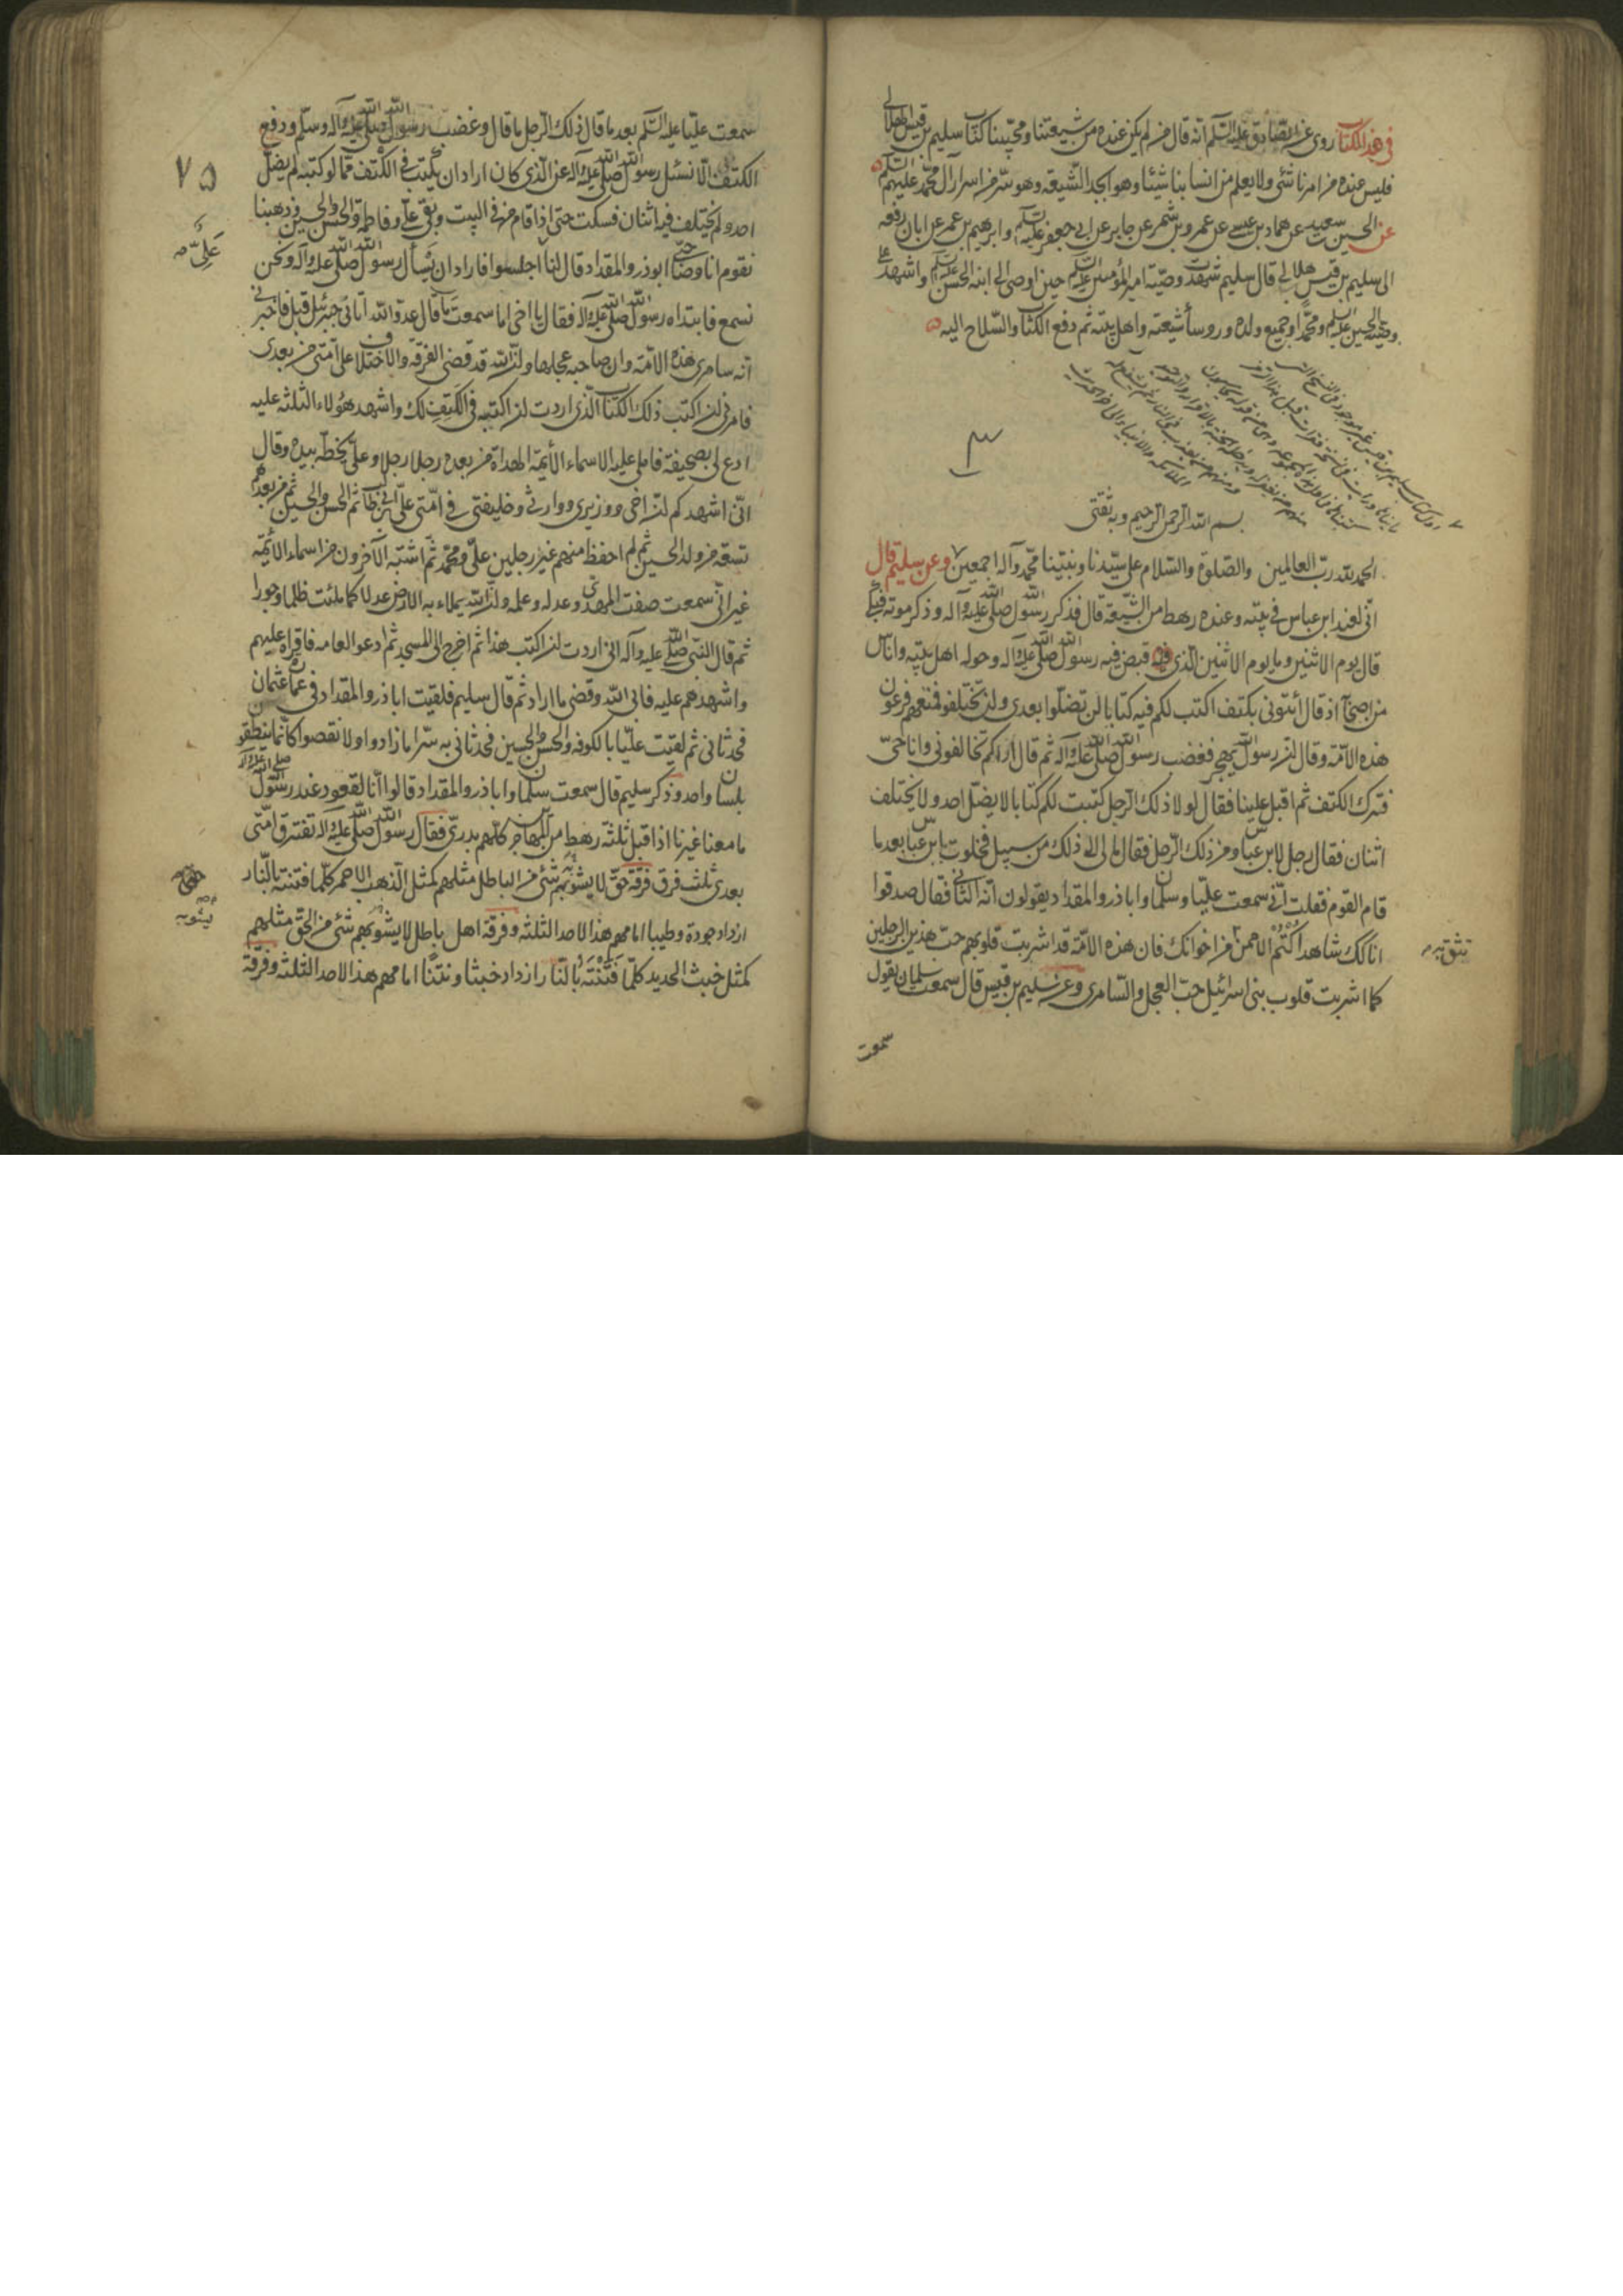 في هذا الكتاب روى عن الصادق عليه السلم انه قال من لم يكن عنده من شيعتنا ومحبينا كتاب سليم بن قيس الهلالي
فليس عنده من امرنا شئ ولا يعلم من اسبابنا شيئا وهو ابجد الشيعه وهو سر من اسرار آل محمد عليهم السلم
عن الحسين بن سعيد عن حماد بن عيسى عن عمرو بن شمر عن جابر عن ابي جعفر عليه السلم وابرهيم بن عمر عن ابان رفعه
الى سليم بن قيس هلالي قال سليم شهدت وصية امير المؤمنين عليه السلم حين اوصى الى ابنه الحسن عليه السلم واشهد على
وصيته الحسين عليه السلم ومحمدا وجميع ولده وروسأ شيعته واهل بيته ثم دفع الكتاب والسلاح اليه
بسم الله الرحمن الرحيم وبه ثقتي
الحمد لله رب العالمين والصلوة والسلام على سيدنا ونبينا محمد وآله اجمعين وعن سليم قال
اني لعند ابن عباس في بيته وعنده رهط من الشيعة قال فذكر رسول الله صلى الله عليه وآله وذكر موته فبكى
قال يوم الاثنين وما يوم الاثنين الذي قبض فيه رسول الله صلى الله عليه وآله وحوله اهل بيته واناس
من اصحابه اذ قال ائتوني بكتف اكتب لكم فيه كتابا لن تضلوا بعدي ولن تختلفوا فمنعهم فرعون
هذه الامة وقال ان رسول الله يهجر فغضب رسول الله صلى الله عليه وآله ثم قال اراكم تخالفوني وانا حي
فترك الكتف ثم اقبل علينا فقال لولا ذلك الرجل كتبت لكم كتابا لا يضل احد ولا يختلف
اثنان فقال رجل لابن عباس ومن ذلك الرجل فقال ما لي الى ذلك من سبيل فخلوت بابن عباس بعد ما
قام القوم فقلت اني سمعت عليا وسلمان واباذر والمقداد يقولون انه الثاني فقال صدقوا
انا لك شاهد اكتم الا ممن تثق به من اخوانك فان هذه الامة قد اشربت قلوبهم حب هذين الرجلين
كما اشربت قلوب بني اسرائيل حب العجل والسامري وعن سليم بن قيس قال سمعت سلمان يقول
سمعت
٧٥
سمعت عليا عليه السلم بعد ما قال ذلك الرجل ما قال وغضب رسول الله صلى الله عليه وآله وسلم ودفع
الكتف الا نسئل رسول الله صلى الله عليه وآله عن الذي كان اراد ان يكتب في الكتف مما لو كتبه لم يضل
احد ولم يختلف فيه اثنان فسكت حتى اذا قام من في البيت وبقي علي وفاطمة والحسن والحسين وذهبنا
نقوم انا وصاحبي ابوذر والمقداد قال لنا علي اجلسوا فاراد ان يسأل رسول الله صلى الله عليه وآله ونحن
نسمع فابتداه رسول الله صلى الله عليه وآله فقال يا اخي اما سمعت ما قال عدو الله اتاني جبرئيل قبل فاخبرني
انه سامري هذه الامة وان صاحبه عجلها ولن الله قد قضى الفرقة والاختلاف على امتي من بعدي
فامرني لن اكتب ذلك الكتاب الذي اردت لن اكتبه في الكتف لك واشهد هؤلاء الثلثه عليه
ادع لي بصحيفة فاملى عليه الاسماء الأئمة الهداة من بعده رجلا رجلا وعلي يخطه بيده وقال
اني اشهدكم لن اخي ووزيري ووارثي وخليفتي في امتي علي بن ابي طالب ثم الحسن والحسين ثم من بعدهم
تسعة من ولد الحسين ثم لم احفظ منهم غير رجلين علي ومحمد ثم اشتبه الآخرون من اسماء الأئمه
غير اني سمعت صفت المهدي وعدله وعمله ولن الله يملاء به الارض عدلا كما ملئت ظلما وجورا
ثم قال النبي صلى الله عليه وآله اني اردت لن اكتب هذا ثم اخرج الى المسجد ثم ادعو العامه فاقراه عليهم
واشهدهم عليه فابى الله وقضى ما اراد ثم قال سليم فلقيت اباذر والمقداد في امارة عثمان
فحدثاني ثم لقيت عليا بالكوفه والحسن والحسين فحدثاني به سرا ما زادوا ولا نقصوا كانما ينطقون
بلسان واحد وذكر سليم قال سمعت سلمان واباذر والمقداد قالوا انا لقعود عند رسول الله صلى الله عليه وآله
ما معنا غيرنا اذ اقبل ثلثة رهط من المهاجرين كلهم بدري فقال رسول الله صلى الله عليه وآله تفترق امتي
بعدي ثلث فرق فرقة حق لا يشوبهم شئ من الباطل مثلهم كمثل الذهب الاحمر كلما فتنته بالنار
ازداد جودة وطيبا امامهم هذا لاحد الثلثة وفرقة اهل باطل لا يشوبهم شئ من الحق مثلهم
كمثل خبث الحديد كلما فتنته بالنار ازداد خبثا ونتنا امامهم هذا لاحد الثلثه وفرقة